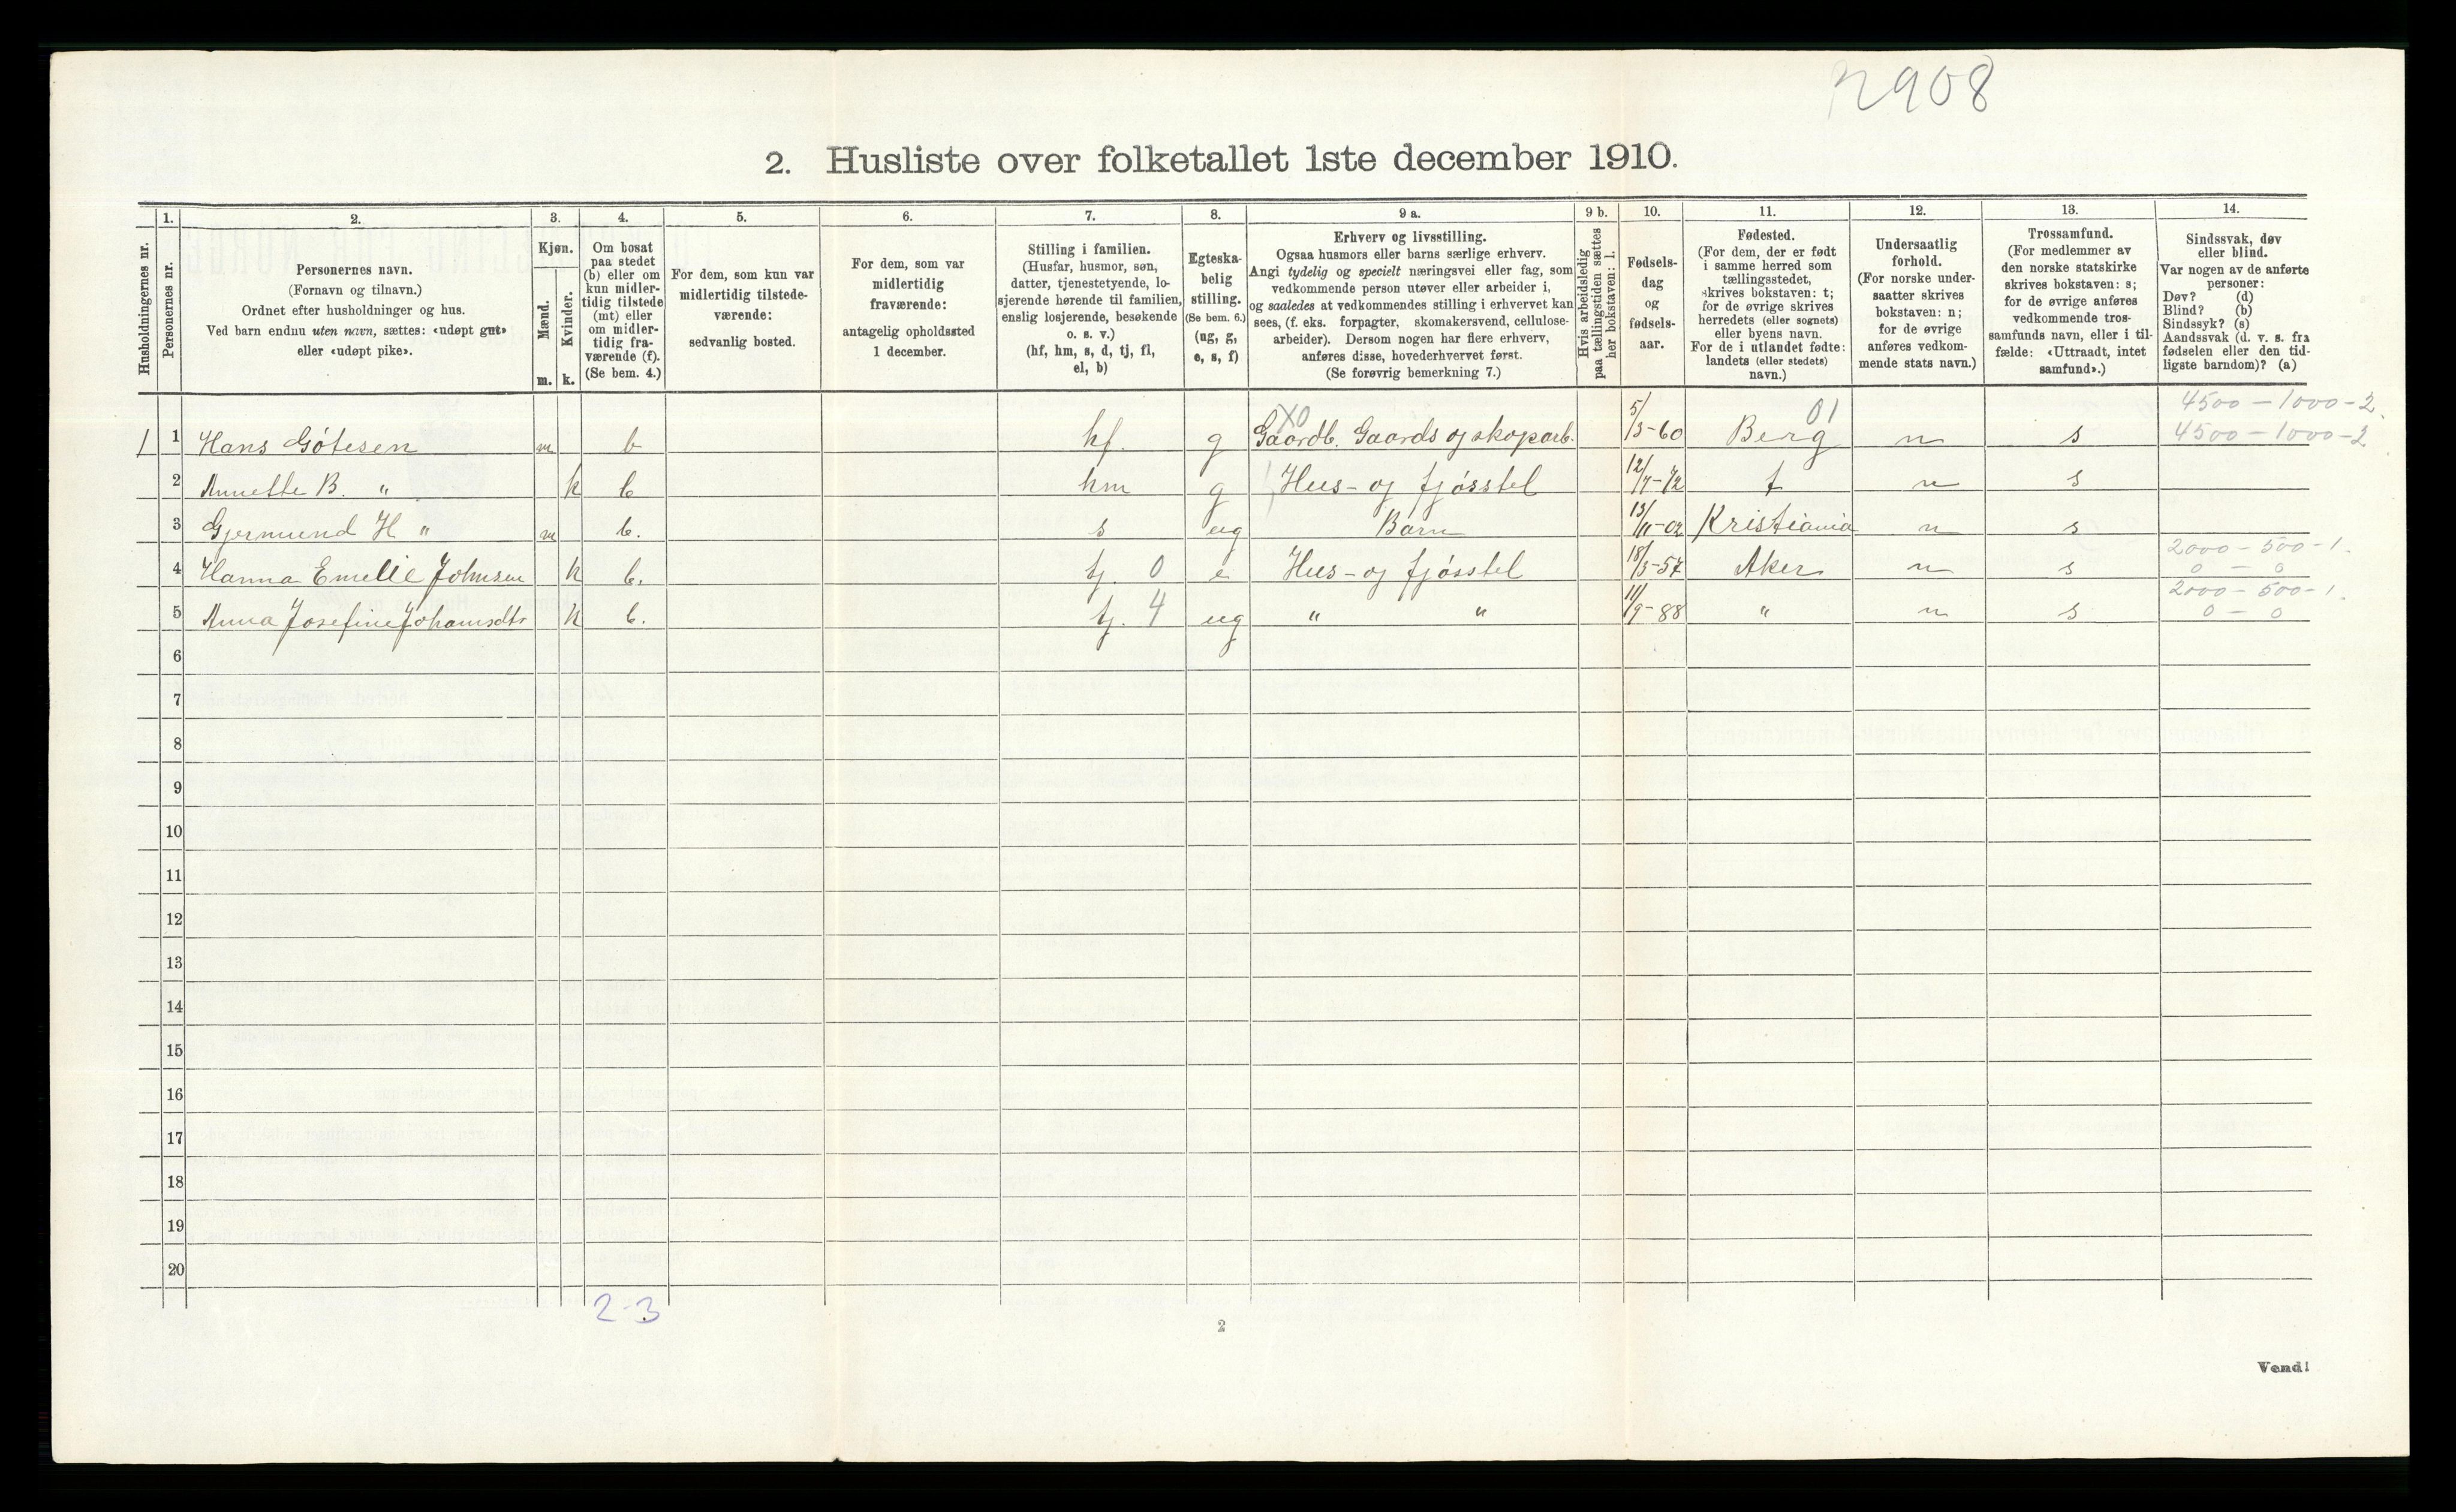 2908
2. Husliste over folketallet 1ste december 1910.
Husholdningernes nr.
1.
Personernes nr.
2.
Personernes navn.
(Fornavn og tilnavn.)
Ordnet efter husholdninger og hus.
Ved barn endnu uten navn, sættes: «udøpt gut»
eller «udøpt pike».
3.
Kjøn.
Mænd.
Kvinder.
m. k.
4.
Om bosat
paa stedet
(b) eller om
kun midler-
tidig tilstede
(mt) eller
om midler-
tidig fra-
værende (f).
(Se bem. 4.)
5.
For dem, som kun var
midlertidig tilstede-
værende:
sedvanlig bosted.
6.
For dem, som var
midlertidig
fraværende:
antagelig opholdssted
1 december.
7.
Stilling i familien.
(Husfar, husmor, søn,
datter, tjenestetyende, lo-
sjerende hørende til familien,
enslig losjerende, besøkende
o. s. v.)
(hf, hm, s, d, tj, fl,
el, b)
8.
Egteska-
belig
stilling.
(Se bem. 6.)
(ug, g,
e, s, f)
9 a.
Erhverv og livsstilling.
Ogsaa husmors eller barns særlige erhverv.
Angi tydelig og specielt næringsvei eller fag, som
vedkommende person utøver eller arbeider i,
og saaledes at vedkommendes stilling i erhvervet kan
sees, (f. eks. forpagter, skomakersvend, cellulose-
arbeider). Dersom nogen har flere erhverv,
anføres disse, hovederhvervet først.
(Se forøvrig bemerkning 7.)
9 b.
Hvis arbeidsledig
paa tællingstiden sættes
her bokstaven: l.
10.
Fødsels-
dag
og
fødsels-
aar.
11.
Fødested.
(For dem, der er født
i samme herred som
tællingsstedet,
skrives bokstaven: t;
for de øvrige skrives
herredets (eller sognets)
eller byens navn.
For de i utlandet fødte:
landets (eller stedets)
navn.)
12.
Undersaatlig
forhold.
(For norske under-
saatter skrives
bokstaven: n;
for de øvrige
anføres vedkom-
mende stats navn.)
13.
Trossamfund.
(For medlemmer av
den norske statskirke
skrives bokstaven: s;
for de øvrige anføres
vedkommende tros-
samfunds navn, eller i til-
fælde: «Uttraadt, intet
samfund».)
14.
Sindssvak, døv
eller blind.
Var nogen av de anførte
personer:
Døv? (d)
Blind? (b)
Sindssyk? (s)
Aandssvak (d. v. s. fra
fødselen eller den tid-
ligste barndom)? (a)
X0 01 4500 – 1000 – 2.
1 1 Hans Götesen m b hf. g Gaardb. Gaards og skogsarb. 5/3-60 Berg n s 4500 – 1000 – 2
2 Annette B. " k b hm g Hus- og fjösstel 12/7-72 t n s
3 Gjermund H " m b. s ug Barn 13/11-02 Kristiania n s
2000 – 500 – 1.
4 Hanna Emelie Johnsen k b. tj. 0 e Hus- og fjösstel 18/3-57 Aker n s 0 – 0
2000 – 500 – 1.
5 Anna Josefine Johannsdtr k b. tj. 4 ug " " 11/9-88 " n s 0 – 0
6
7
8
9
10
11
12
13
14
15
16
17
18
19
20
2-3
2
Vend!